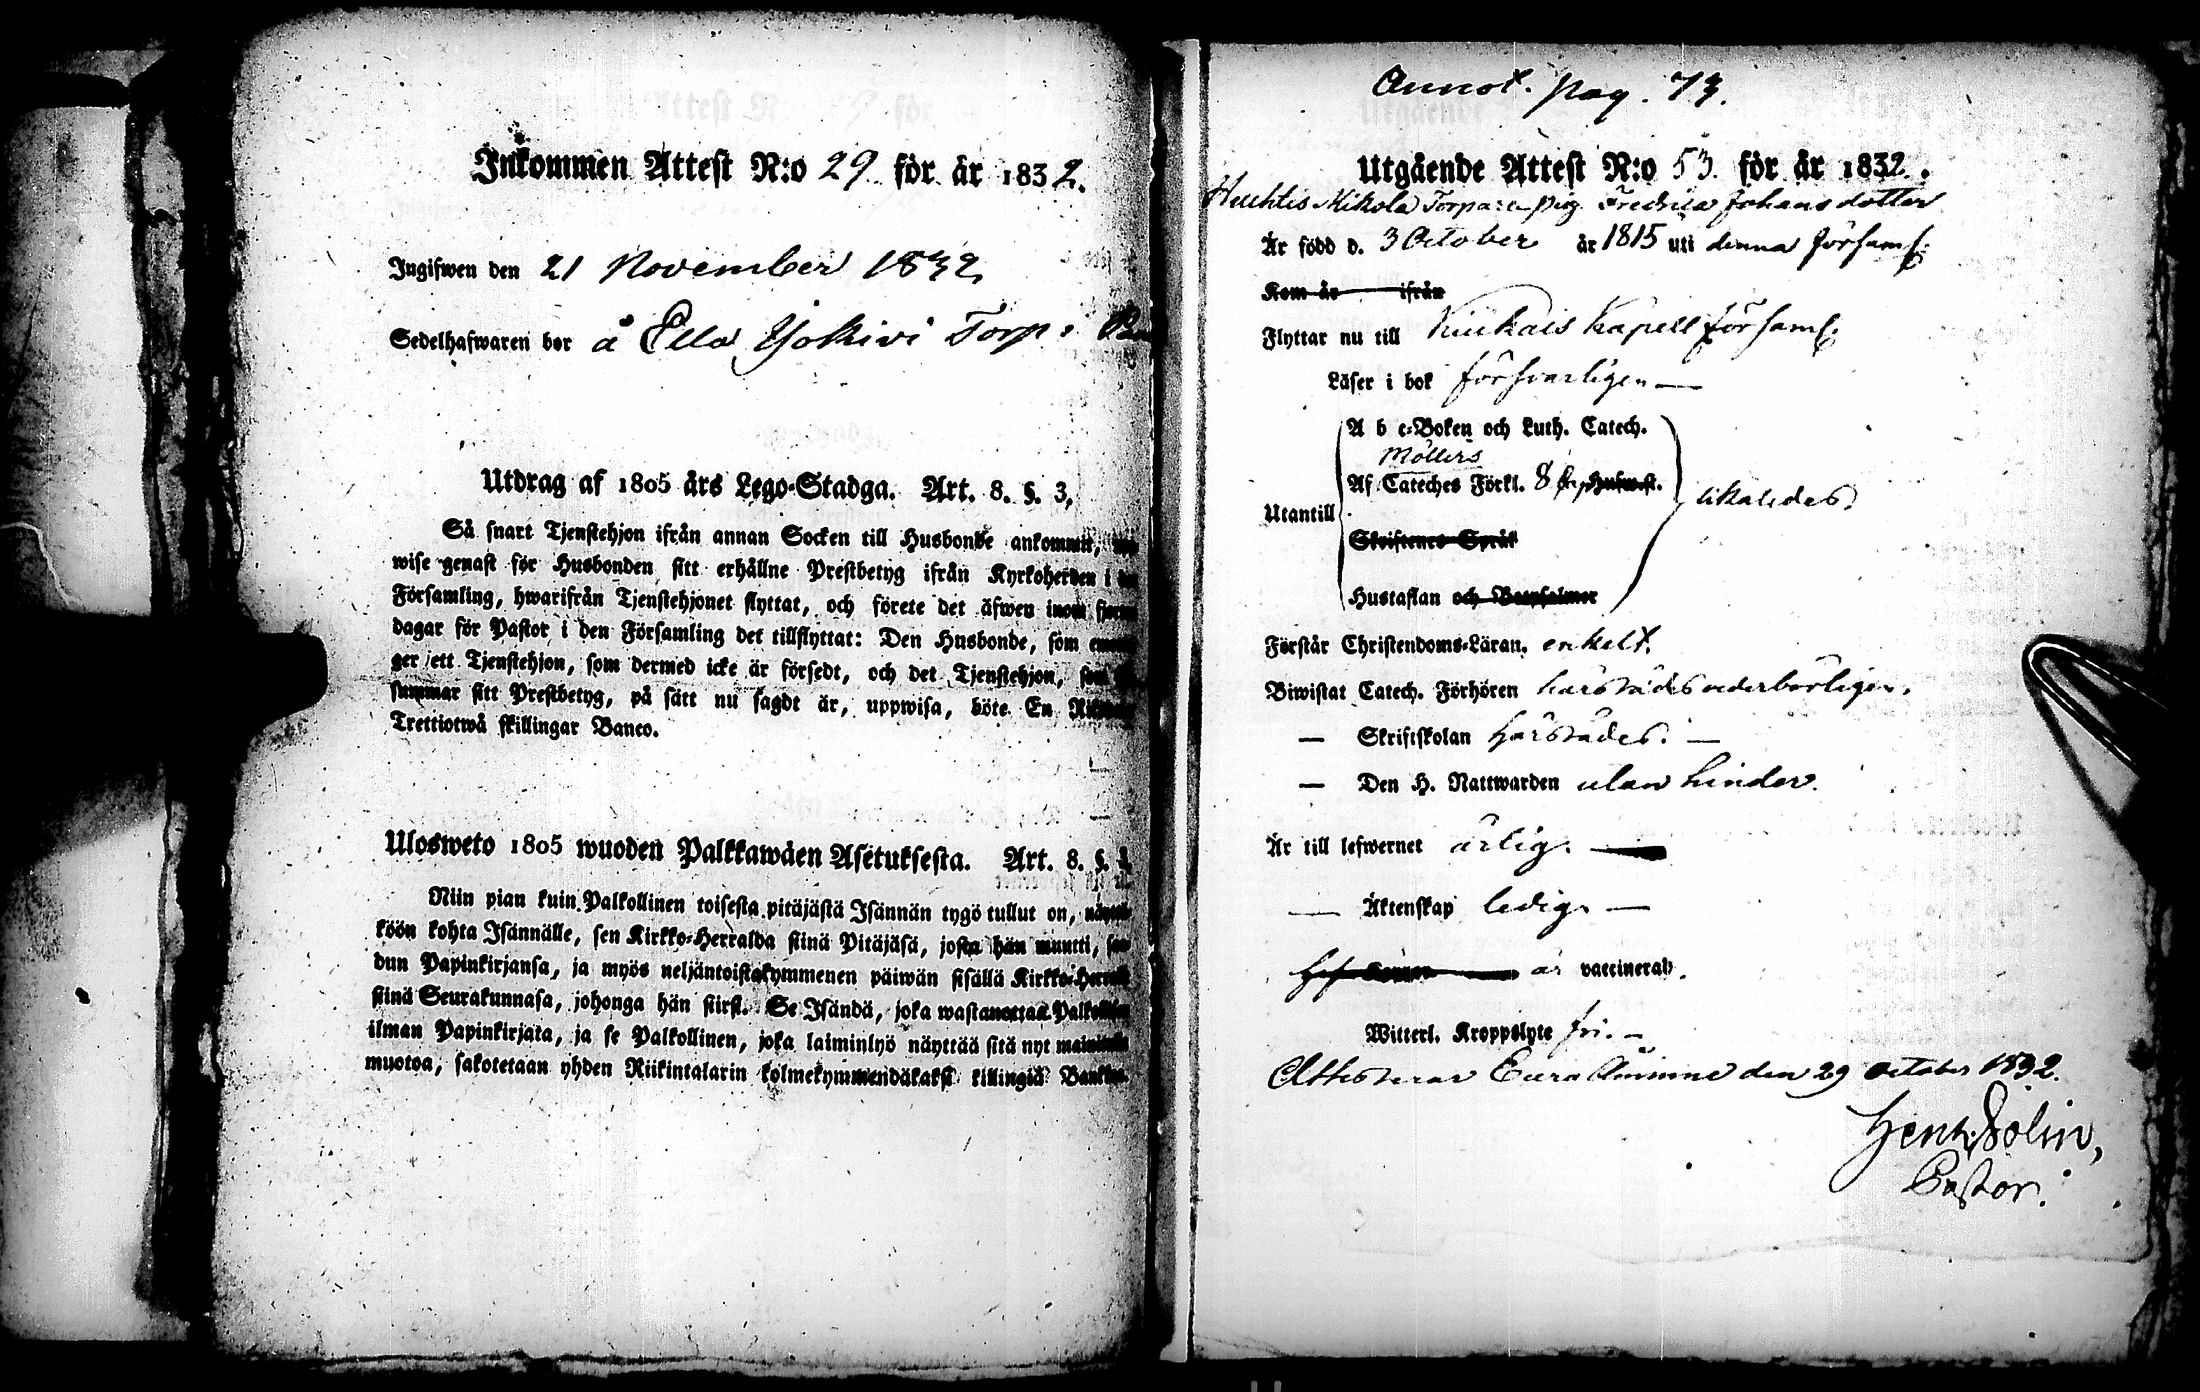 Inkommen Attest N:o 29 för år 1832.
Ingifwen den 21 November 1832
Sedelhafwaren bor å Ella Yokivi Torp
Utdrag af 1805 års Lego-Stadga. Art. 8. §. 3,
Så snart Tjenstehjon ifrån annan Socken till Husbonde ankommit,
wise genast för Husbonden sitt erhållne Prestbetyg ifrån Kyrkoherden i
Församling, hwarifrån Tjenstehjonet flyttat, och förete det äfwen inom
dagar för Pastor i den Församling det tillflyttat: Den Husbonde, som
ger ett Tjenstehjon, som dermed icke är försedt, och det Tjenstehjon,
summar sitt Prestbetyg, på sätt nu sagdt är, uppwisa, böte En
Trettiotwå skillingar Banco.
Ulosweto 1805 wuoden Palkkawäen Asetuksesta. Art. 8. §. 3.
Niin pian kuin Palkollinen toisesta pitäjästä Isännän tygö tullut on,
köön kohta Isännälle, sen Kirkko-Herralda siinä Pitäjäsä, josta hän muutti,
dun Papinkirjansa, ja myös neljäntoistakymmenen päiwän sisällä Kirkko-
siinä Seurakunnasa, johonga hän siirsi. Se Isändä, joka wastanottaa
ilman Papinkirjata, ja se Palkollinen, joka laiminlyö näyttää sitä nyt
muotoa, sakotetaan yhden Riikintalarin kolmekymmendäkaksi killingiä
Annot. pag. 73.
Utgående Attest N:o 53 för år 1832.
Huhtis Mikola Torpare pig. Fredrica Johansdotter
Är född d. 3 October år 1815 uti denna församl.
Kom år ifrån
Flyttar nu till Kiukais Kapell församl.
Läser i bok försvarligen
A b c-Boken och Luth. Catech.
Möllers
Af Cateches Förkl. 8
Utantill likaledes
Skriftenes Språk
Hustaflan och Botpsalmer
Förstår Christendoms-Läran. enkelt.
Biwistat Catech. Förhören härstädes vederbörligen.
— Skriftskolan härstädes. —
— Den H. Nattwarden utan hinder.
Är till lefwernet ärlig. —
— Äktenskap ledig. —
är vaccinerad.
Witterl. Kroppslyte fri. —
Attesterar Eura Åminne den 29 October 1832.
Henr. Solin,
Pastor.